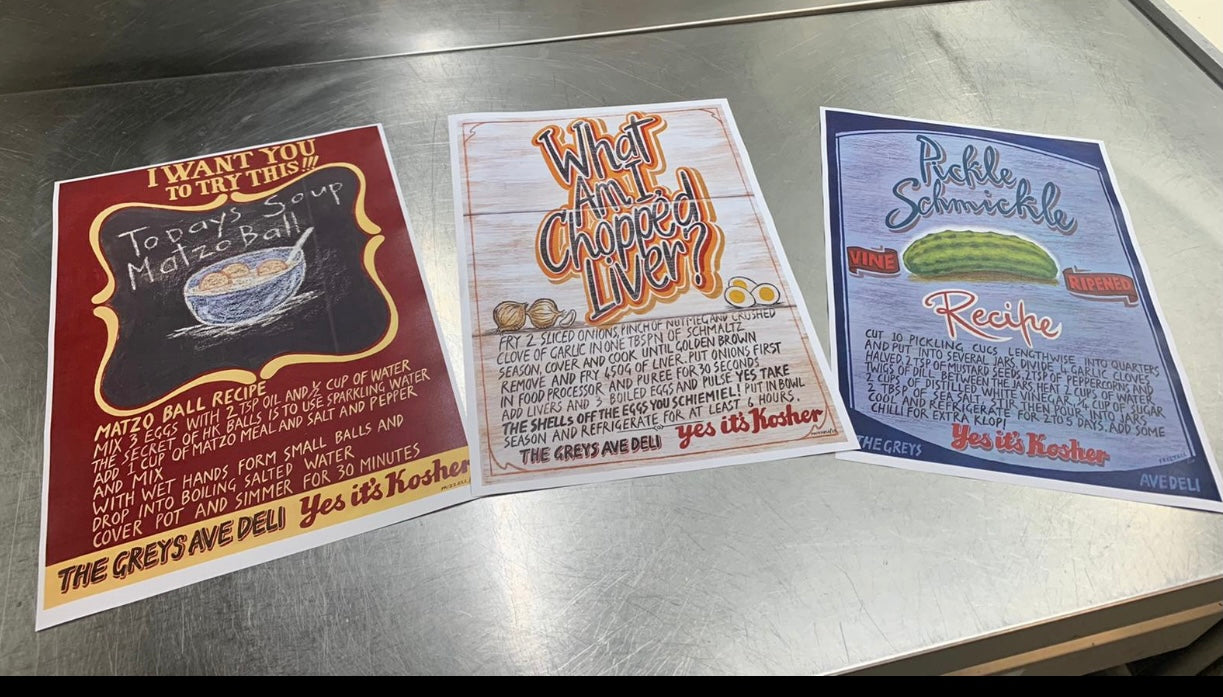 I WANT YOU
TO TRY THIS!!!
Todays Soup
Matzo Ball
MATZO BALL RECIPE
MIX 3 EGGS WITH 2 TSP OIL AND ½ CUP OF WATER
THE SECRET OF HK BALLS IS TO USE SPARKLING WATER
ADD 1 CUP OF MATZO MEAL AND SALT AND PEPPER
AND MIX
WITH WET HANDS FORM SMALL BALLS AND
DROP INTO BOILING SALTED WATER
COVER POT AND SIMMER FOR 30 MINUTES
THE GREYS AVE DELI Yes it's Kosher
What
Am I
Chopped
Liver?
FRY 2 SLICED ONIONS, PINCH OF NUTMEG AND CRUSHED
CLOVE OF GARLIC IN ONE TBSPN OF SCHMALTZ
SEASON, COVER AND COOK UNTIL GOLDEN BROWN
REMOVE AND FRY 450G OF LIVER. PUT ONIONS FIRST
IN FOOD PROCESSOR AND PUREE FOR 30 SECONDS
ADD LIVERS AND 3 BOILED EGGS AND PULSE YES TAKE
THE SHELLS OFF THE EGGS YOU SCHEMIEL! PUT IN BOWL
SEASON AND REFRIGERATE FOR AT LEAST 6 HOURS.
THE GREYS AVE DELI yes it's Kosher
Pickle
Schmickle
VINE RIPENED
Recipe
CUT 10 PICKLING CUCS, LENGTHWISE, INTO QUARTERS
AND PUT INTO SEVERAL JARS. DIVIDE 4 GARLIC CLOVES
HALVED 2 TSP OF MUSTARD SEEDS, 1 TSP OF PEPPERCORN, FIVE
TWIGS OF DILL BETWEEN THE JARS HEAT 2 CUPS OF WATER,
2 CUPS OF DISTILLED WHITE VINEGAR, ¼ CUP OF SUGAR
2 TBSP OF SEA SALT, STIR THEN POUR INTO JARS
COOL AND REFRIGERATE FOR 2 TO 5 DAYS. ADD SOME
CHILLI FOR EXTRA KLOP!
THE GREYS Yes it's Kosher
AVE DELI